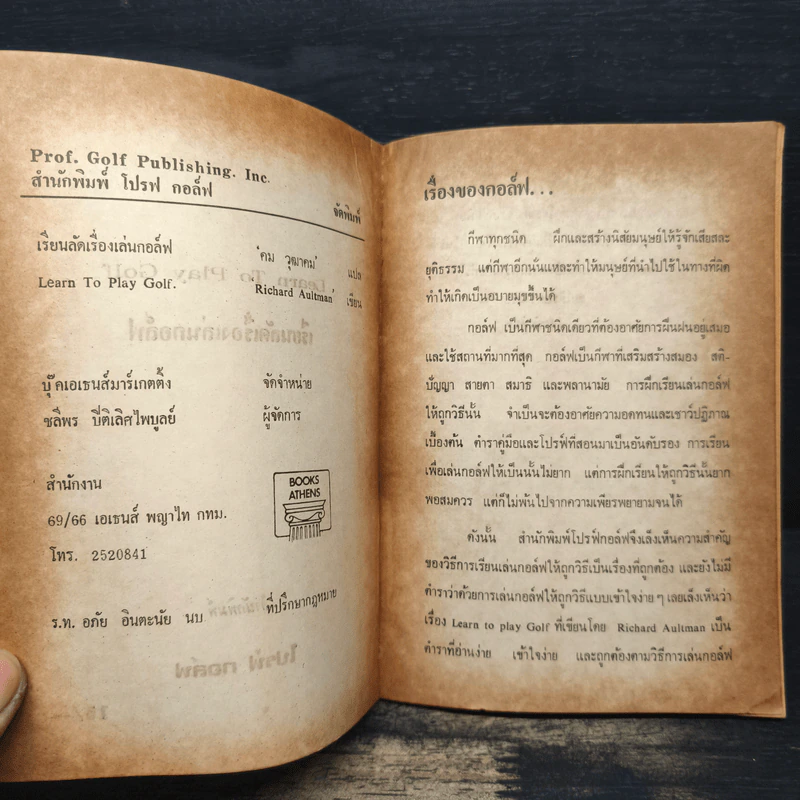 Prof. Golf Publishing. Inc.
สำนักพิมพ์ โปรฟ กอล์ฟ จัดพิมพ์
เรียนลัดเรื่องเล่นกอล์ฟ "คม วุฒาคม" แปล
Learn To Play Golf. Richard Aultman เขียน
บุ๊คเอเธนส์มาร์เกตติ้ง จัดจำหน่าย
ชลีพร ปีติเลิศไพบูลย์ ผู้จัดการ
สำนักงาน
BOOKS
ATHENS
69/66 เอเธนส์ พญาไท กทม.
โทร. 2520841
ร.ท. อภัย อินตะนัย นบ ที่ปรึกษากฎหมาย
เรื่องของกอล์ฟ...
กีฬาทุกชนิด ฝึกและสร้างนิสัยมนุษย์ให้รู้จักเสียสละ
ยุติธรรม แต่กีฬาอีกนั่นแหละทำให้มนุษย์ที่นำไปใช้ในทางที่ผิด
ทำให้เกิดเป็นอบายมุขขึ้นได้
กอล์ฟ เป็นกีฬาชนิดเดียวที่ต้องอาศัยการฝึนฝนอยู่เสมอ
และใช้สถานที่มากที่สุด กอล์ฟเป็นกีฬาที่เสริมสร้างสมอง สติ-
ปัญญา สายตา สมาธิ และพลานามัย การฝึกเรียนเล่นกอล์ฟ
ให้ถูกวิธีนั้น จำเป็นจะต้องอาศัยความอดทนและเชาว์ปฏิภาณ
เบื้องต้น ตำราคู่มือและโปรฟ์ที่สอนมาเป็นอันดับรอง การเรียน
เพื่อเล่นกอล์ฟให้เป็นนั้นไม่ยาก แต่การฝึกเรียนให้ถูกวิธีนั้นยาก
พอสมควร แต่ก็ไม่พ้นไปจากความเพียรพยายามจนได้
ดังนั้น สำนักพิมพ์โปรฟ์กอล์ฟจึงเล็งเห็นความสำคัญ
ของวิธีการเรียนเล่นกอล์ฟให้ถูกวิธีเป็นเรื่องที่ถูกต้อง และยังไม่มี
ตำราว่าด้วยการเล่นกอล์ฟให้ถูกวิธีแบบเข้าใจง่าย ๆ เลยเล็งเห็นว่า
เรื่อง Learn to play Golf ที่เขียนโดย Richard Aultman เป็น
ตำราที่อ่านง่าย เข้าใจง่าย และถูกต้องตามวิธีการเล่นกอล์ฟ